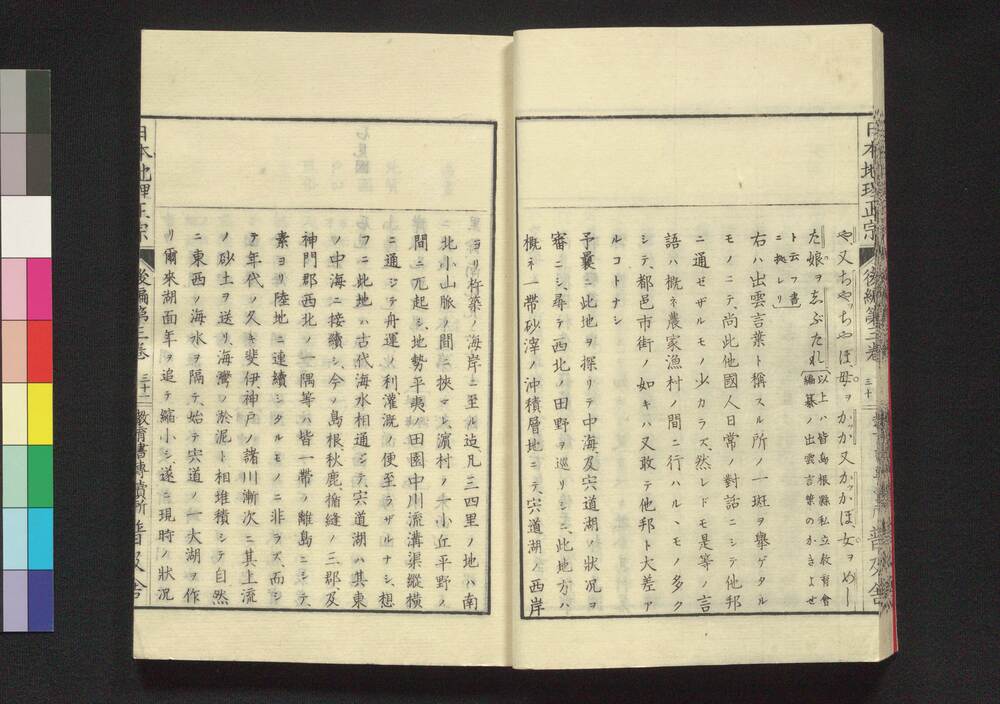 日本地理正宗 後編第三卷 三十 普及舍
や又ちやちやぼ母ヲかか又かかぼ、女ヲめー
た娘ヲゑぶたれ(以上ハ皆島根縣私立教育會編纂ノ出雲言葉のかきよせ
ト云フ書ニ據レリ)
右ハ出雲言葉ト稱スル所ノ一斑ヲ擧ゲタル
モノニテ、尚此他國人日常ノ對話ニシテ他邦
ニ通ゼザルモノ少カラズ、然レドモ是等ノ言
語ハ概ネ農家漁村ノ間ニ行ハルヽモノ多ク
シテ、都邑市街ノ如キハ又敢テ他邦ト大差ア
ルコトナシ
予曩ニ此地ヲ探リテ中海及宍道湖ノ狀況ヲ
審ニシ、尋テ西北ノ田野ヲ巡リシニ、此地方ハ
概ネ一帶砂滓ノ沖積層地ニテ、宍道湖ノ西岸
ヨリ杵築ノ海岸ニ至ル迠、凡三四里ノ地ハ南
北小山脈ノ間ニ挾マレ、濵村ノ一小丘平野ノ
間ニ兀起シ、地勢平夷ノ田園中川流溝渠縱橫
ニ通ジテ舟運ノ利灌漑ノ便至ラザルナシ、想
フニ此地ハ古代海水相通ジテ、宍道湖ハ其東
ノ中海ニ接續シ、今ノ島根秋鹿、楯縫ノ三郡、及
神門郡西北ノ一隅等ハ皆一帶ノ離島ニシテ、
素ヨリ陸地ニ連續シタルモノニ非ラズ、而シ
テ年代ノ久キ斐伊、神戶ノ諸川漸次ニ其上流
ノ砂土ヲ送リ、海灣ノ淤泥ト相堆積シテ自然
ニ東西ノ海水ヲ隔テ、始テ宍道ノ一大湖ヲ作
リ爾來湖面年ヲ追テ縮小シ、遂ニ現時ノ狀況
日本地理正宗 後編第三卷 三十一 教育書專賣所普及舍